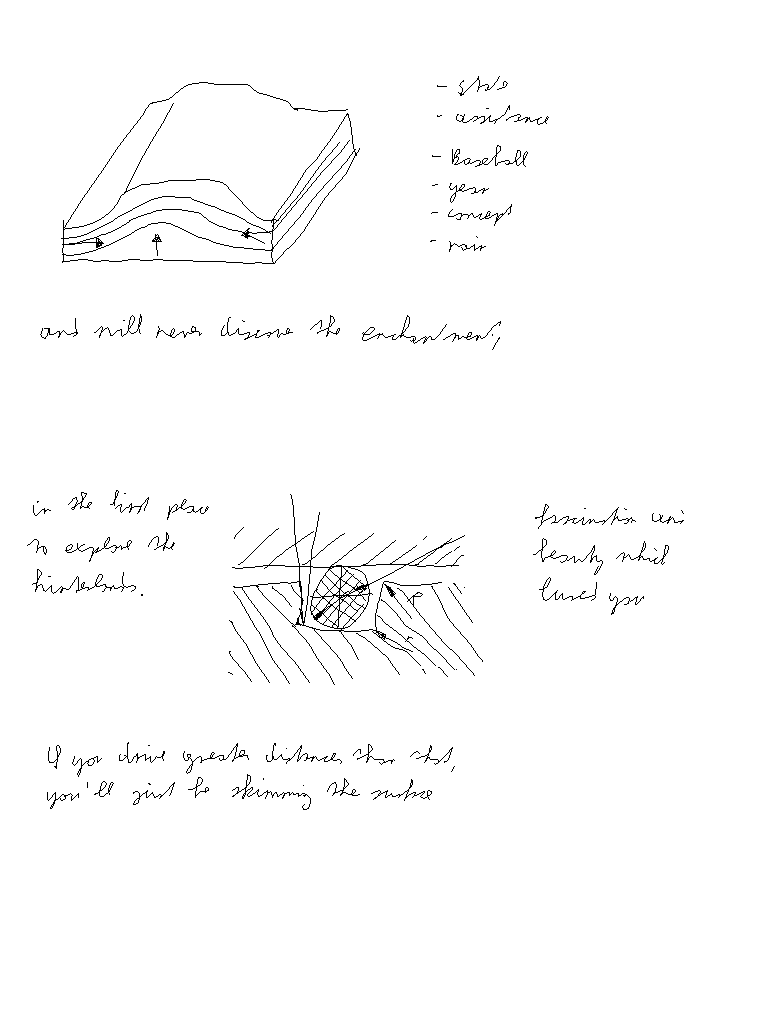 - assistance
- Baseball
- year
- concept
and will never discover the enchantment,
in the first place
to explore the
hinterlands.
fascination and
beauty which
lured you
r
r
If you drive greater distances than that,
you'll just be skimming the surface